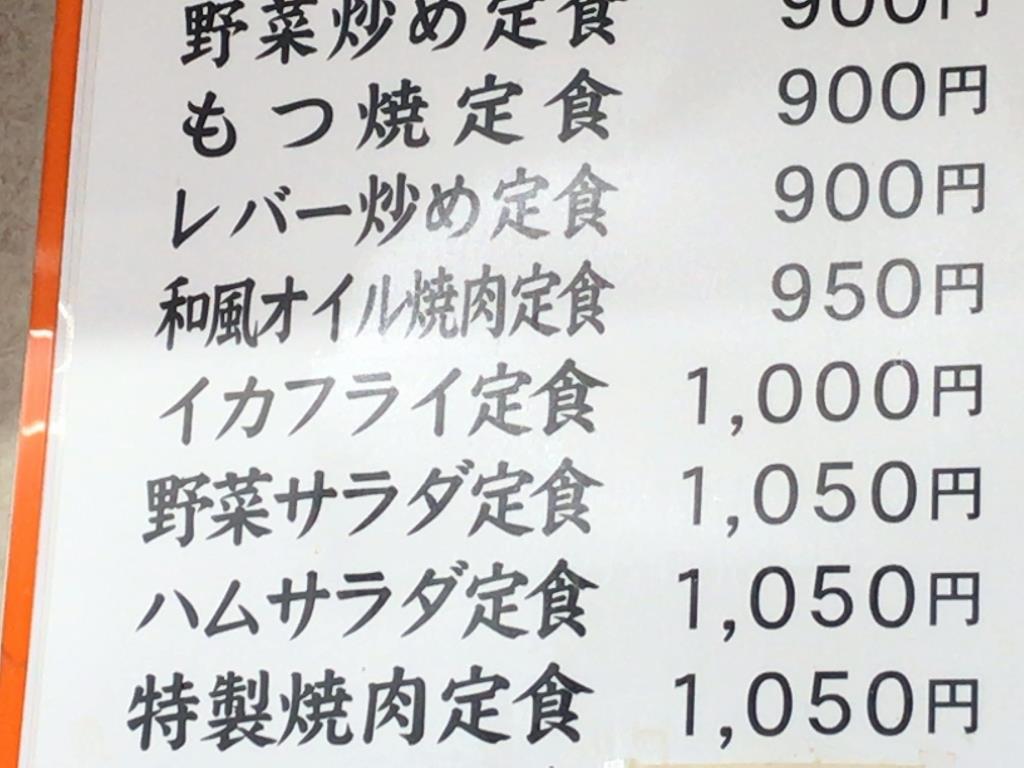 野菜炒め定食 900円
もつ焼定食 900円
レバー炒め定食 900円
和風オイル焼肉定食 950円
イカフライ定食 1,000円
野菜サラダ定食 1,050円
ハムサラダ定食 1,050円
特製焼肉定食 1,050円